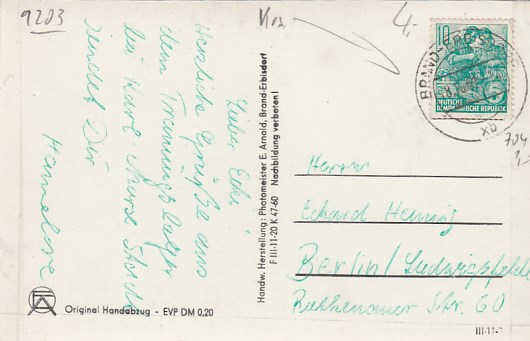 9203
4,-
Lieber Ecki
Herzliche Grüße aus
dem Trainingslager
bei Karl-Marx Stadt
sendet Dir
Hannelore
Original Handabzug - EVP DM 0,20
Handw. Herstellung: Photomeister E. Arnold, Brand-Erbisdorf
F III-11-20 K 47-60 Nachbildung verboten!
10
DEUTSCHE
DEMOKRATISCHE REPUBLIK
BRAND-ERBISD
xb
704
1,-
Herrn
Eckard Hennig
Berlin/Ludwigsfelde
Rathenower Str. 60
III-11-